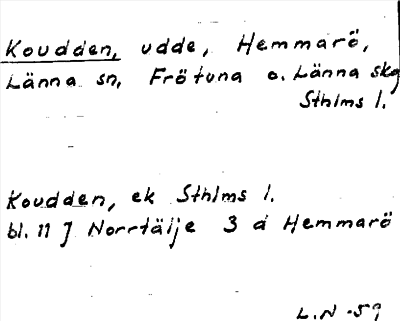 Koudden, udde, Hemmarö,
Länna sn, Frötuna o. Länna skg
Sthlms l.
Koudden, ek Sthlms l.
bl. 11 J Norrtälje 3 d Hemmarö
L.N -59